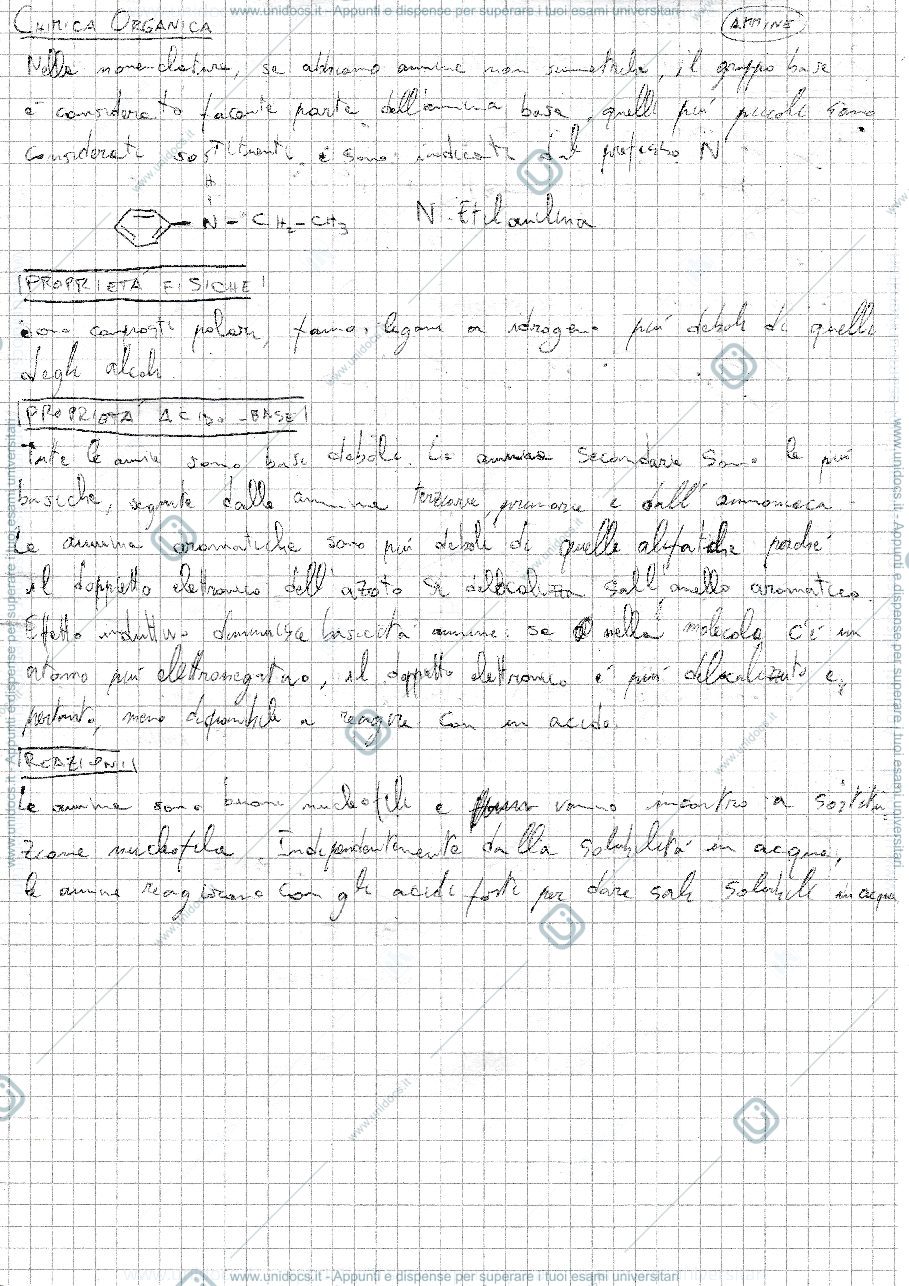 www.unidocs.it - Appunti e dispense per superare i tuoi esami universitari
CHIMICA ORGANICA
AMMINE
Nella nomenclatura, se abbiamo ammine non simmetriche, il gruppo base
è considerato facente parte dell'ammina base, quelli più piccoli sono
considerati sostituenti e sono indicati dal prefisso N
H
N - CH2 - CH3 N-Etilanilina
PROPRIETÀ FISICHE
Sono composti polari, fanno legami a idrogeno più deboli di quelli
degli alcoli.
PROPRIETÀ ACIDO-BASE
Tutte le amine sono basi deboli. Le ammine secondarie sono le più
basiche, seguite dalle ammine terziarie, primarie e dall'ammoniaca
Le ammine aromatiche sono più deboli di quelle alifatiche perché
il doppietto elettronico dell'azoto si delocalizza sull'anello aromatico.
Effetto induttivo diminuisce basicità ammine: se nella molecola c'è un
atomo più elettronegativo, il doppietto elettronico è più delocalizzato e,
pertanto, meno disponibile a reagire con un acido.
REAZIONI
Le ammine sono buoni nucleofili e vanno incontro a sostitu
zione nucleofila. Indipendentemente dalla solubilità in acqua,
le amine reagiscono con gli acidi forti per dare sali solubili in acqua
www.unidocs.it - Appunti e dispense per superare i tuoi esami universitari